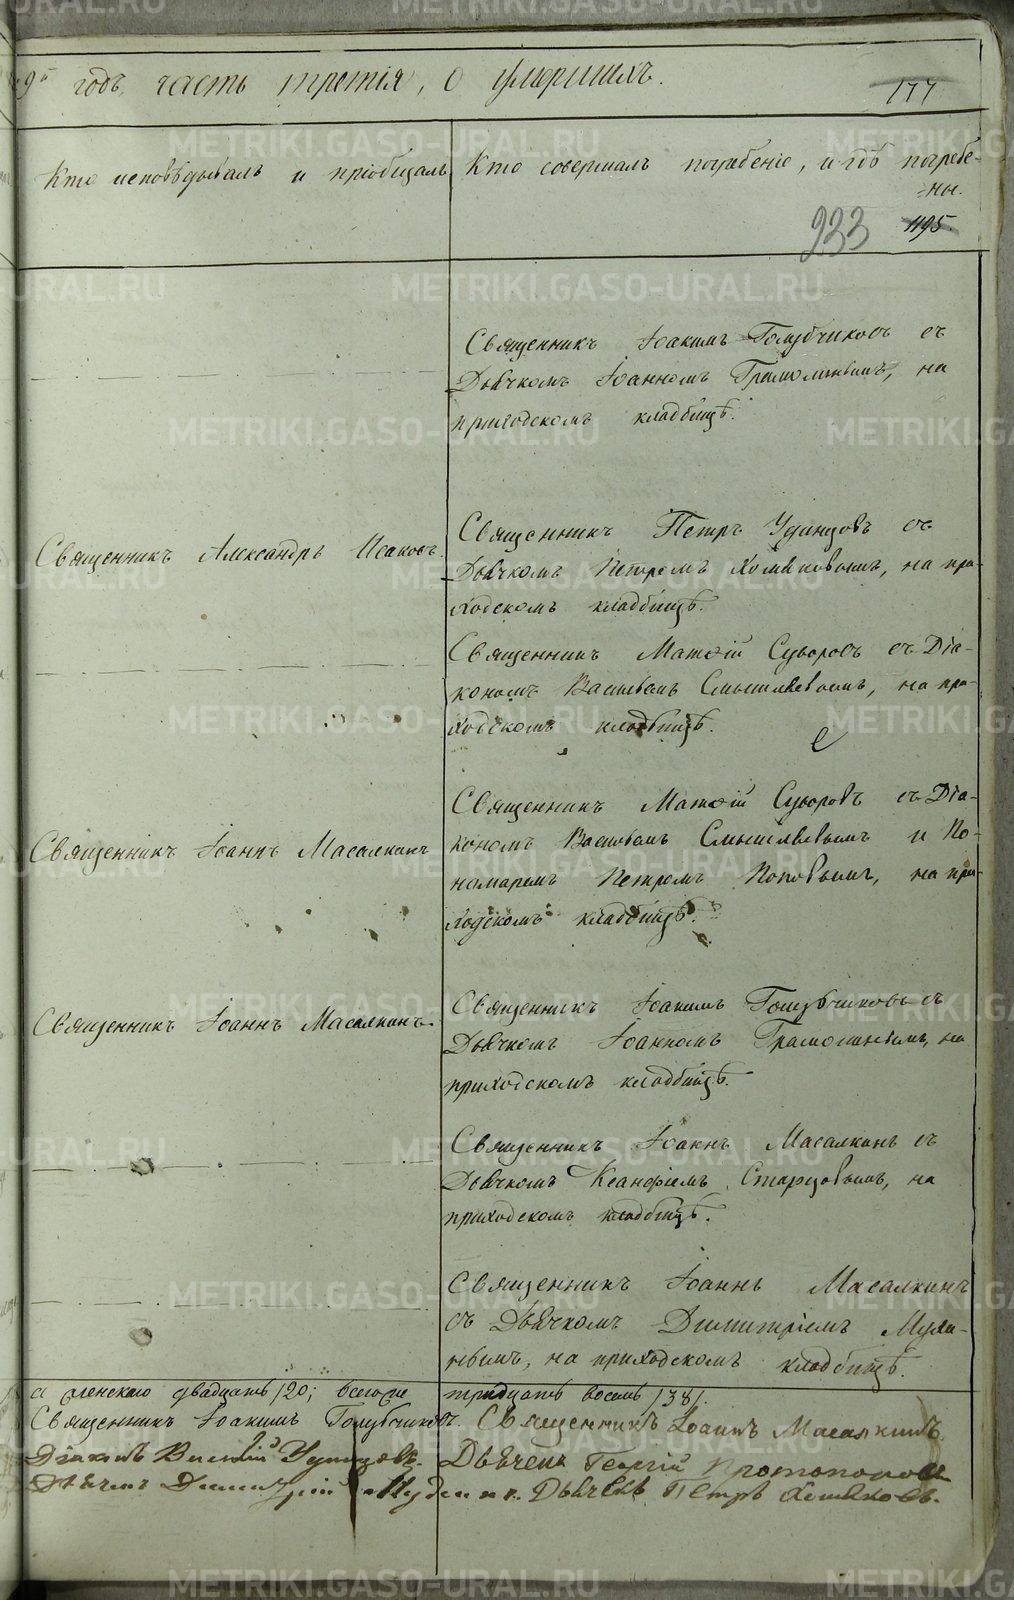 годъ, часть третія, о умершихъ.
177
Кто исповѣдывалъ и пріобщалъ
Кто совершалъ погребеніе, и гдѣ погребе-
ны.
933 1195.
Священникъ Іоакимъ Голубчиковъ съ
Дьячкомъ Іоанномъ Грамолинымъ, на
приходскомъ кладбищѣ.
Священникъ Александръ Исаковъ.
Священникъ Петръ Удинцовъ съ
Дьячкомъ Петромъ Хомяковымъ, на при-
ходскомъ кладбищѣ.
Священникъ Матѳій Суворовъ съ Діа-
кономъ Васильемъ Смышляевымъ, на при-
ходскомъ кладбищѣ.
Священникъ Іоаннъ Масалкинъ
Священникъ Матѳій Суворовъ съ Діа-
кономъ Васильемъ Смышляевымъ и По-
номаремъ Петромъ Поповымъ, на при-
ходскомъ кладбищѣ.
Священникъ Іоаннъ Масалкинъ.
Священникъ Іоакимъ Голубчиковъ съ
Дьячкомъ Іоанномъ Грамолинымъ, на
приходскомъ кладбищѣ.
Священникъ Іоаннъ Масалкинъ съ
Дьячкомъ Ксанфіемъ Старцовымъ, на
приходскомъ кладбищѣ.
Священникъ Іоаннъ Масалкинъ
съ Дьячкомъ Димитріемъ Мули-
нымъ, на приходскомъ кладбищѣ.
а женскаго двадцать /20/; всего тридцать восемь /38/.
Священникъ Іоакимъ Голубчиковъ. Священникъ Іоаннъ Масалкинъ.
Діаконъ Василій Удинцовъ. Дьячекъ Георгій Протопоповъ
Дьячекъ Димитрій Дьячекъ Петръ Хомяковъ.
METRIKI.GASO-URAL.RU